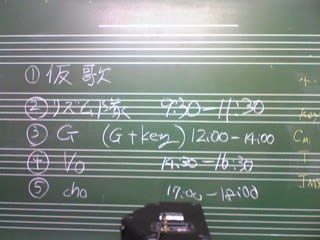 ① 仮歌
② リズム隊 9:30-11:30
③ G (G+key) 12:00-14:00
④ Vo 14:30-16:30
⑤ cho 17:00-18:00
key